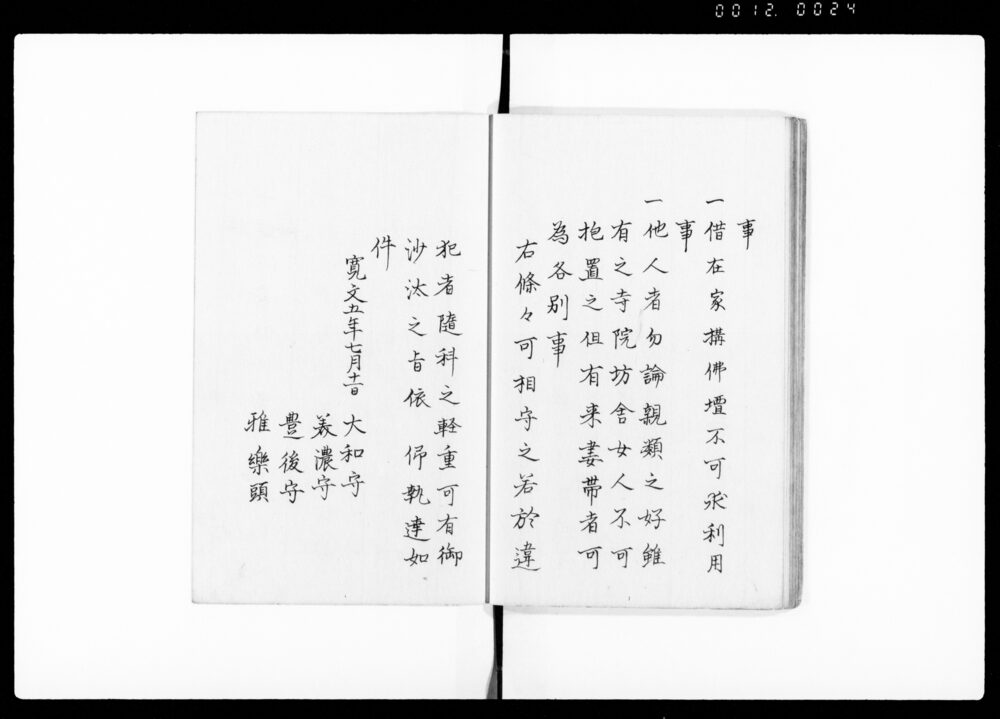 0012.0024
事
一借在家構佛壇不可求利用
事
一他人者勿論親類之好雖
有之寺院坊舎女人不可
抱置之但有来妻帯者可
為各別事
右條々可相守之若於違
犯者随科之軽重可有御
沙汰之旨依 仰執達如
件
寛文五年七月十一日
大和守
美濃守
豊後守
雅樂頭